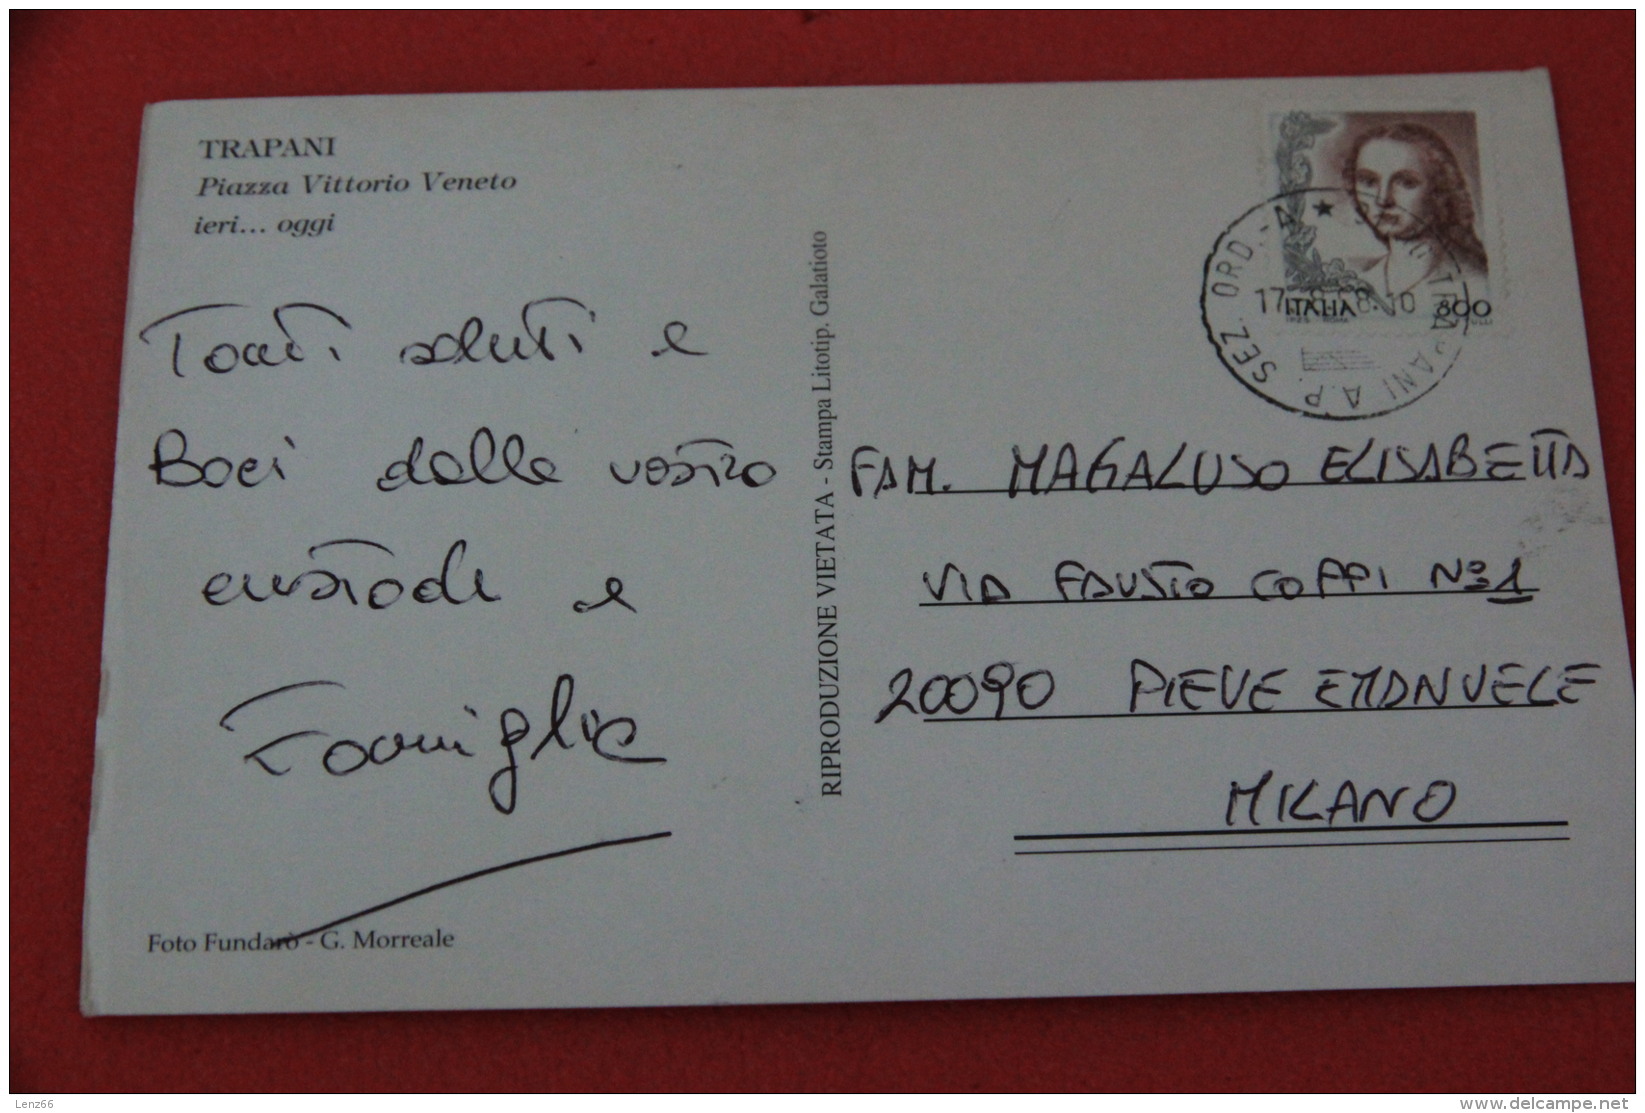 TRAPANI
Piazza Vittorio Veneto
ieri... oggi
Tanti saluti e
Baci dalla vostro
custode e
Famiglia
Foto Fundarò - G. Morreale
RIPRODUZIONE VIETATA - Stampa Litotip. Galatioto
ITALIA 800
I.P.Z.S. ROMA
SEZ. ORD
TRAPANI A.P.
FAM. MAGALUSO ELISABETTA
VIA FAUSTO COPPI Nº 1
20090 PIEVE EMANUELE
MILANO
Lenz66
www.delcampe.net